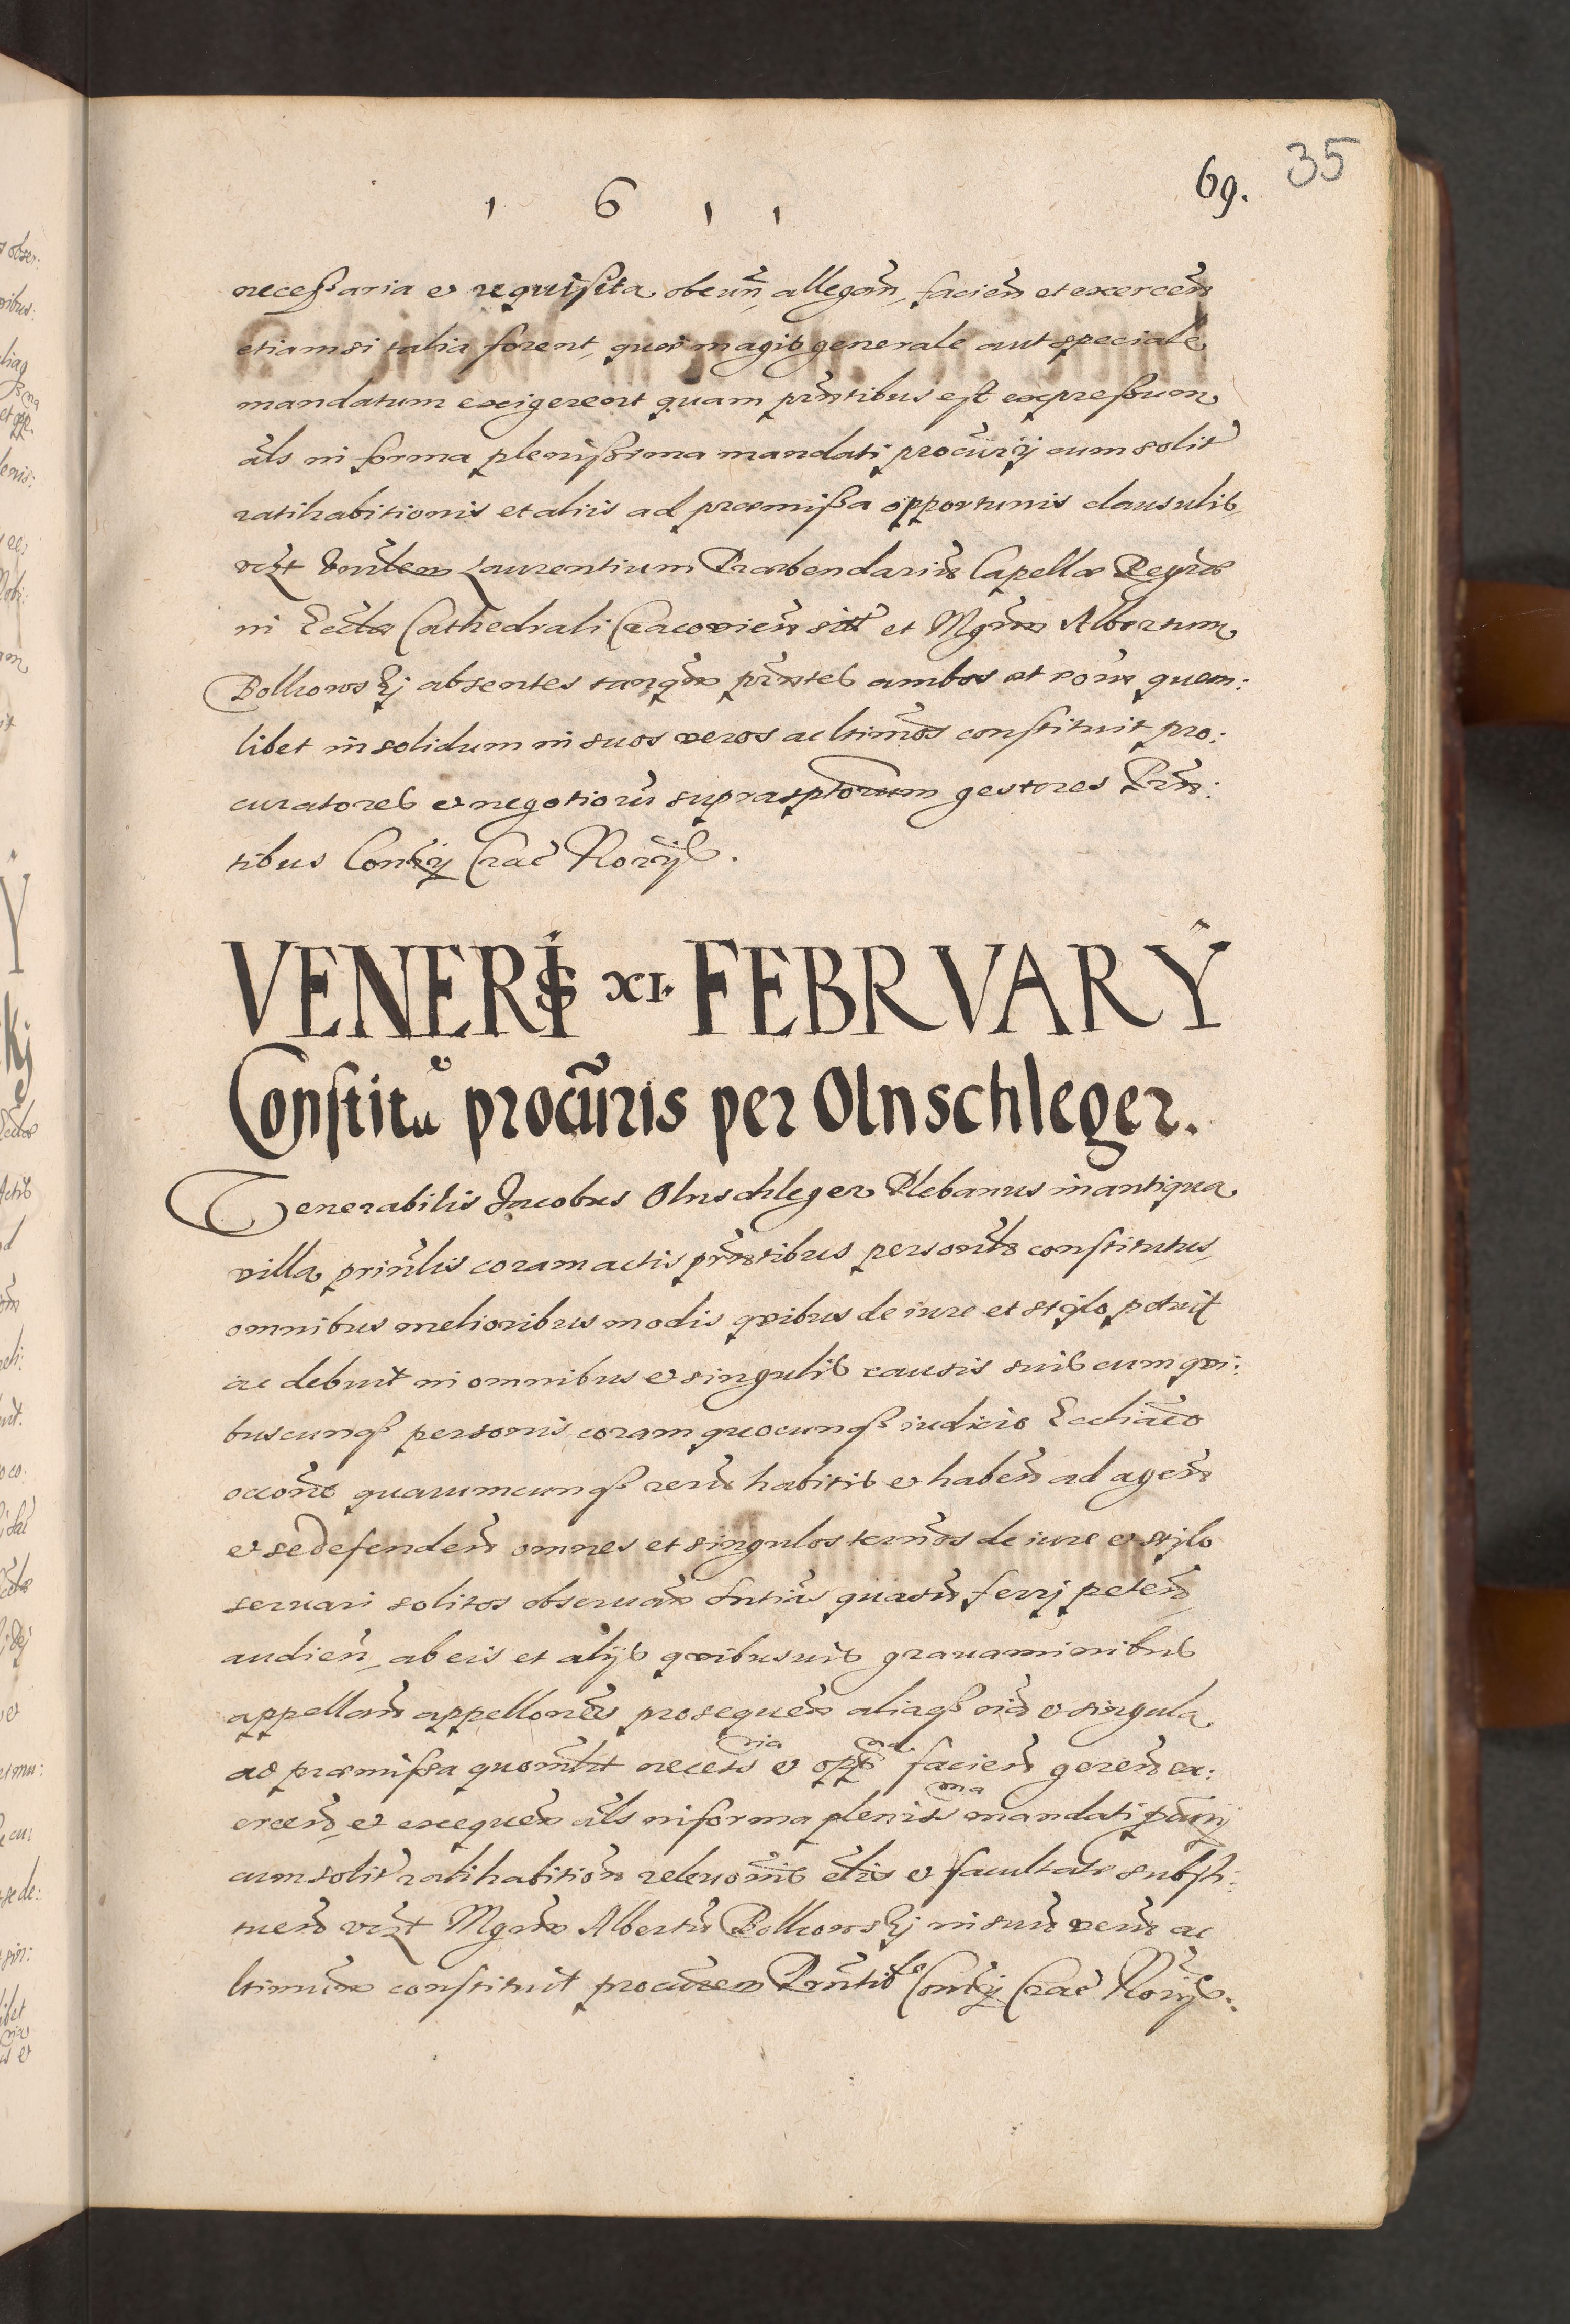 35
1 6 1 1 69.
necessaria et requisita obeun̄, allegan̄, facien̄ et exercen̄
etiamsi talia forent, quae magis generale aut speciale
mandatum exigerent quam pn̄tibus est expressum
al̄s in forma plenissima mandati procur̄ij cum solit̄
ratihabitionis et aliis ad praemissa opportunis clausulis,
vizt Laurentium Praebendariū Capellae Regiae
in Eccl̄a Cathedrali Cracovien̄ sitt et Mgr̄m Albertum
Bolkowskij absentes tanq̄m pn̄tes ambos et eor̄um quem:
libet in solidum in suos veros ac ltimos constituit pro:
curatores et negotiorū suprasptorum gestores Pn̄:
tibus Cons̄ij Crac̄ Nor̄ijs.
VENERIS XI. FEBRVARY
Constitū procūris per Olnschleger.
Venerabilis Jacobus Olnschleger Plebanus in antiqua
villa prin̄lis coram actis pn̄tibus personl̄r constitutus,
omnibus melioribus modis quibus de iure et stylo potuit
ac debuit in omnibus et singulis causis suis cum qui:
buscunq̃ personis coram quocunq̃ iudicio Eccl̄iaco
occ̄one quarumcunq̃ rerū habitis et haben̄ ad agen̄
et se defenden̄ omnes et singulos term̄os de iure et stylo
servari solitos observan̄ sn̄tias quasuis ferrj peten̄,
audien̄, ab eis et alijs quibusuis gravaminibus
appellan̄ appell̄ones prosequen̄ aliaq̃ oīa et singula
ad praemissa quomlt necess ria et opp na facien̄ geren̄ ex:
ercen̄, et exequen̄ al̄s in forma plenis ma mandati pc̄urij
cum solit̄ ratihabition̄ relevōnis el̄is et facultate substi:
tuen̄ vizt Mgr̄m Albertū Bolkowskij in suū verū ac
ltimum constituit procurem Pn̄tibs Cons̄ij Crac̄ Nor̄ijs.